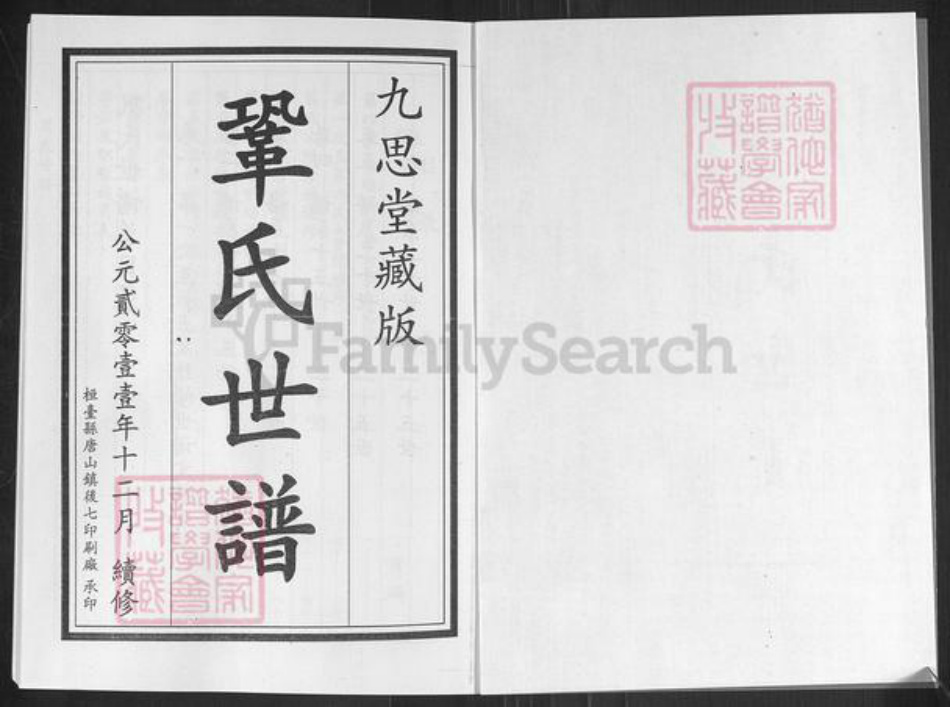 九思堂藏版
鞏氏世譜
公元貳零壹壹年十二月 續修
桓臺縣唐山鎮後七印刷廠 承印
譜學會
收藏
FamilySearch